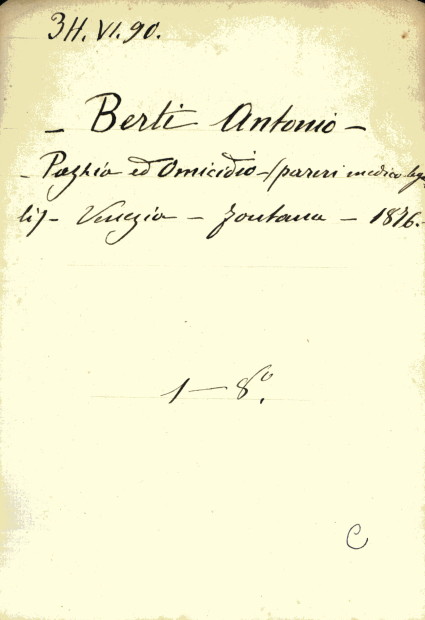 3H. VI. 90.
- Berti Antonio -
- Pazzia ed Omicidio - (pareri medico-lega
li) - Venezia - Fontana - 1876. -
1 - 8º.
C